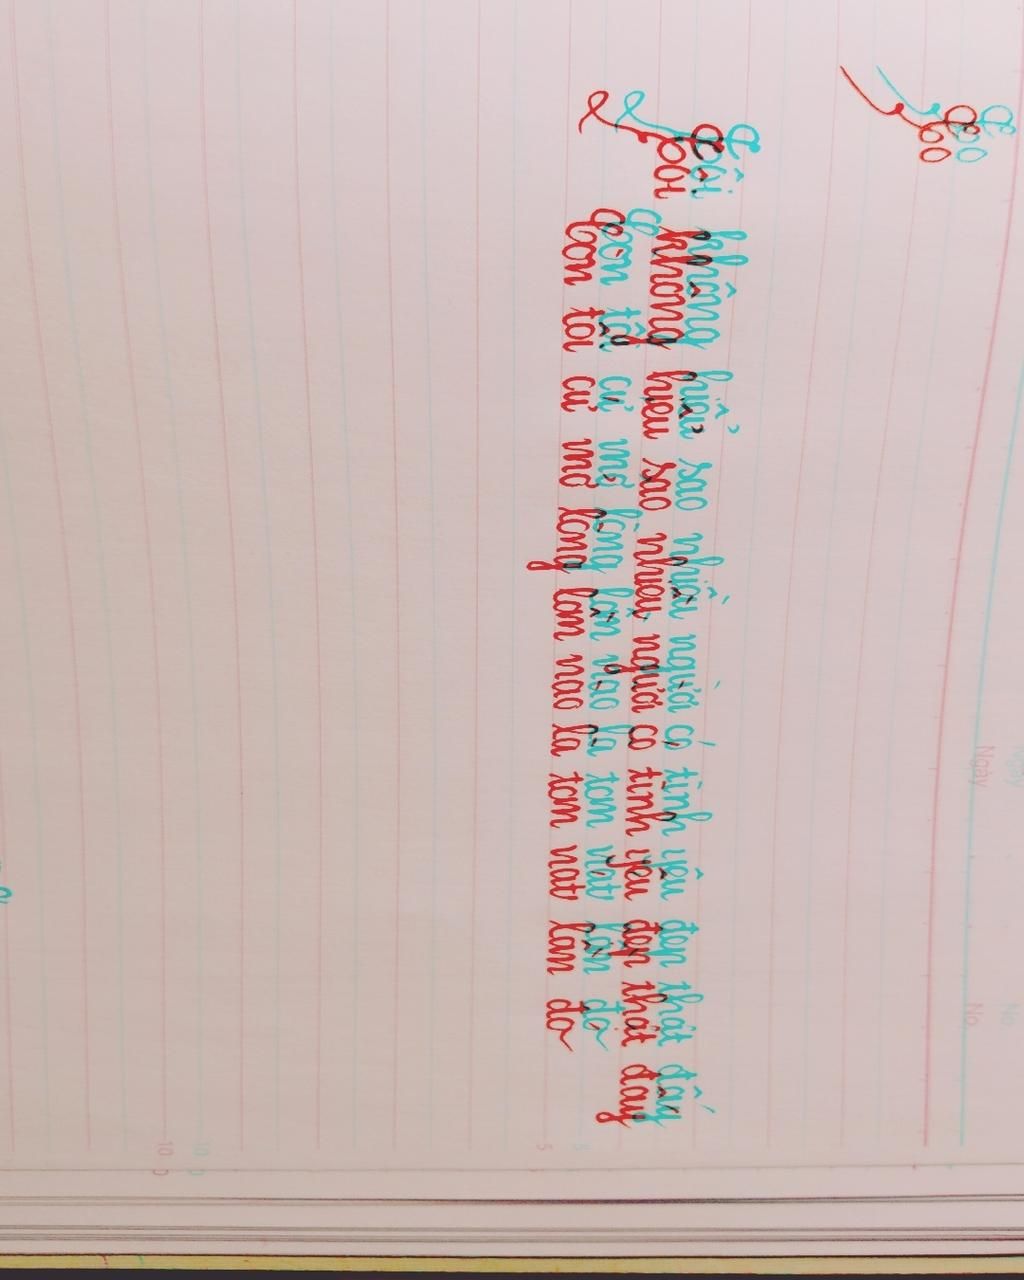 Ngày No
Tôi không hiểu sao nhiều người có tình yêu đẹp thật đấy
Còn tôi cứ mở lòng lần nào là tan nát lần đó
5
10